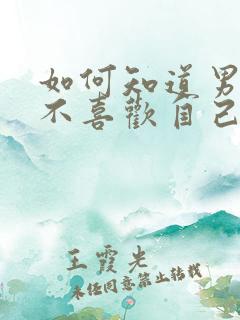 如何知道男
不喜歡自己
王霞先
未经同意禁止转载